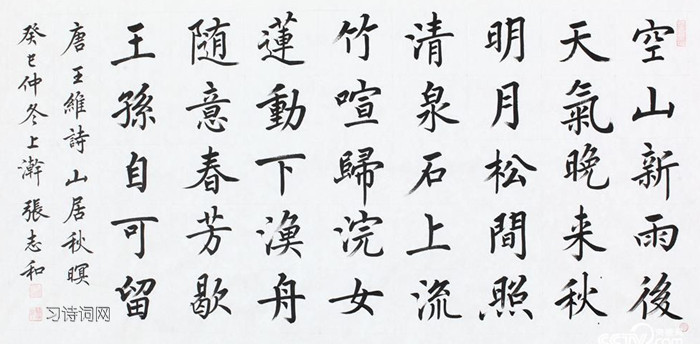 空山新雨後
天氣晚来秋
明月松間照
清泉石上流
竹喧歸浣女
蓮動下漁舟
随意春芳歇
王孫自可留
唐王維詩山居秋暝
癸巳仲冬上澣張志和
习诗词网
CCTV.com